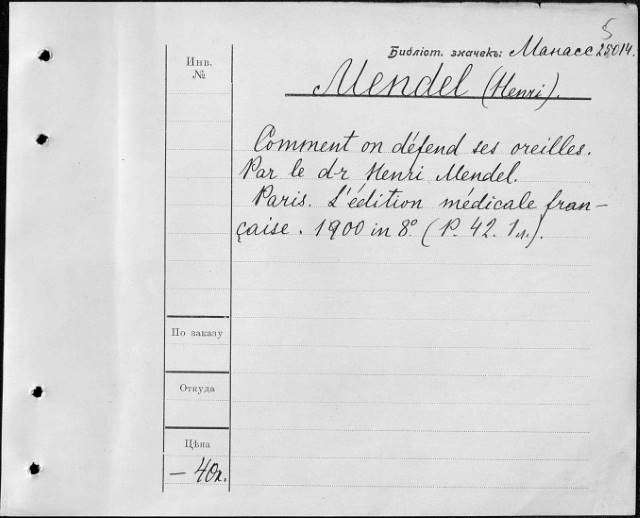 5
Библіот. значекъ: Манасс 25014.
Инв.
№
Mendel (Henri).
Comment on défend ses oreilles.
Par le d-r Henri Mendel.
Paris. L'édition médicale fran-
çaise. 1900 in 8° (P. 42. 1 л.).
По заказу
Откуда
Цѣна
— 40к.